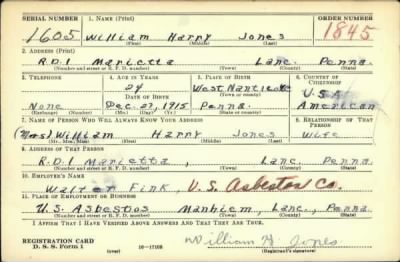 SERIAL NUMBER 1. NAME (Print) ORDER NUMBER
1605 William Harry Jones 1845
(First) (Middle) (Last)
2. ADDRESS (Print)
R.D.1 Marietta Lanc. Penna.
(Number and street or R. F. D. number) (Town) (County) (State)
3. TELEPHONE 4. AGE IN YEARS 5. PLACE OF BIRTH 6. COUNTRY OF CITIZENSHIP
24 West Nanticoke U.S.A
DATE OF BIRTH (Town or county)
None Dec. 27, 1915 Penna. American
(Exchange) (Number) (Mo.) (Day) (Yr.) (State or country)
7. NAME OF PERSON WHO WILL ALWAYS KNOW YOUR ADDRESS 8. RELATIONSHIP OF THAT PERSON
(Mrs) William Harry Jones Wife
(Mr., Mrs., Miss) (First) (Middle) (Last)
9. ADDRESS OF THAT PERSON
R.D.1 Marietta, Lanc. Penna.
(Number and street or R. F. D. number) (Town) (County) (State)
10. EMPLOYER'S NAME
Walter Fink, U.S. Asbestos Co.
11. PLACE OF EMPLOYMENT OR BUSINESS
U.S. Asbestos Manhiem, Lanc., Penna
(Number and street or R. F. D. number) (Town) (County) (State)
I AFFIRM THAT I HAVE VERIFIED ABOVE ANSWERS AND THAT THEY ARE TRUE.
REGISTRATION CARD
D. S. S. FORM 1 (over) 16-17105 William H Jones
(Registrant's signature)